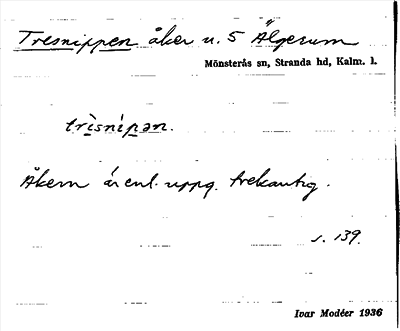 Tresnippen åker u. 5 Älgerum
Mönsterås sn, Stranda hd, Kalm. l.
trìsnípən.
Åkern är enl. uppg. trekantig.
s. 139.
Ivar Modéer 1936